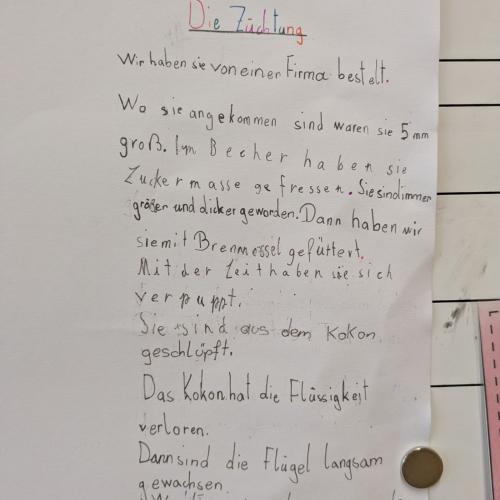 Die Züchtung
Wir haben sie von einer Firma bestelt.
Wo sie angekommen sind waren sie 5 mm
groß. Iym Becher haben sie
Zuckermasse gefressen. Sie sind immer
größer und dicker geworden. Dann haben wir
sie mit Brennessel gefüttert.
Mit der Zeit haben sie sich
verpuppt.
Sie sind aus dem Kokon
geschlüpft.
Das Kokon hat die Flüssigkeit
verloren.
Dann sind die Flügel langsam
gewachsen